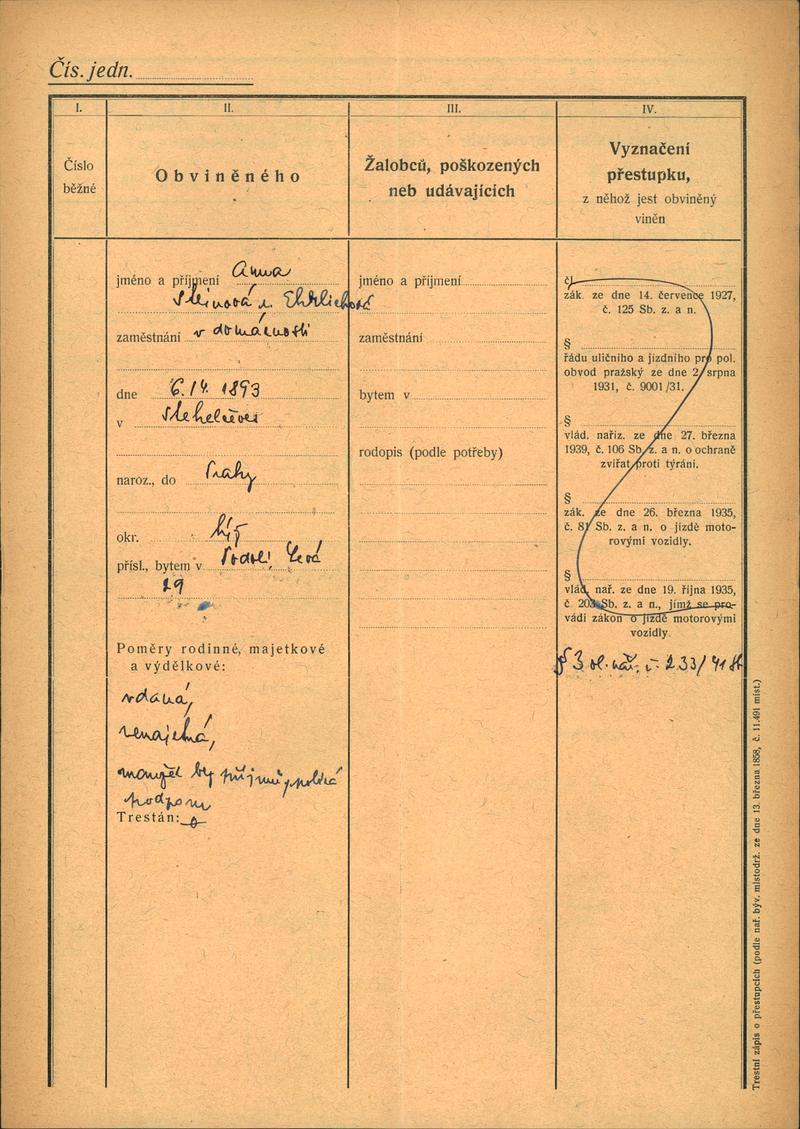 Čís. jedn.
I.
II.
III.
IV.
Číslo
běžné
Obviněného
Žalobců, poškozených
neb udávajících
Vyznačení
přestupku,
z něhož jest obviněný
viněn
jméno a příjmení Anna
Steinová r. Ehrlichová
zaměstnání v domácnosti
dne 6.IV. 1893
v
naroz., do Prahy
okr.
přísl., bytem v Podolí, Levá
29
Poměry rodinné, majetkové
a výdělkové:
vdaná,
nemajetná,
manžel bez příjmů, pobírá
podporu
Trestán: 0
jméno a příjmení
zaměstnání
bytem v
rodopis (podle potřeby)
čl.
zák. ze dne 14. července 1927,
č. 125 Sb. z. a n.
§
řádu uličního a jízdního pro pol.
obvod pražský ze dne 2. srpna
1931, č. 9001/31.
§
vlád. naříz. ze dne 27. března
1939, č. 106 Sb. z. a n. o ochraně
zvířat proti týrání.
§
zák. ze dne 26. března 1935,
č. 81 Sb. z. a n. o jízdě moto-
rovými vozidly.
§
vlád. nař. ze dne 19. října 1935,
č. 203 Sb. z. a n., jímž se pro-
vádí zákon o jízdě motorovými
vozidly.
§ 3 vl. nař. č. 233/41 Sb
Trestní zápis o přestupcích (podle nař. býv. místodrž. ze dne 13. března 1858, č. 11.491 míst.)